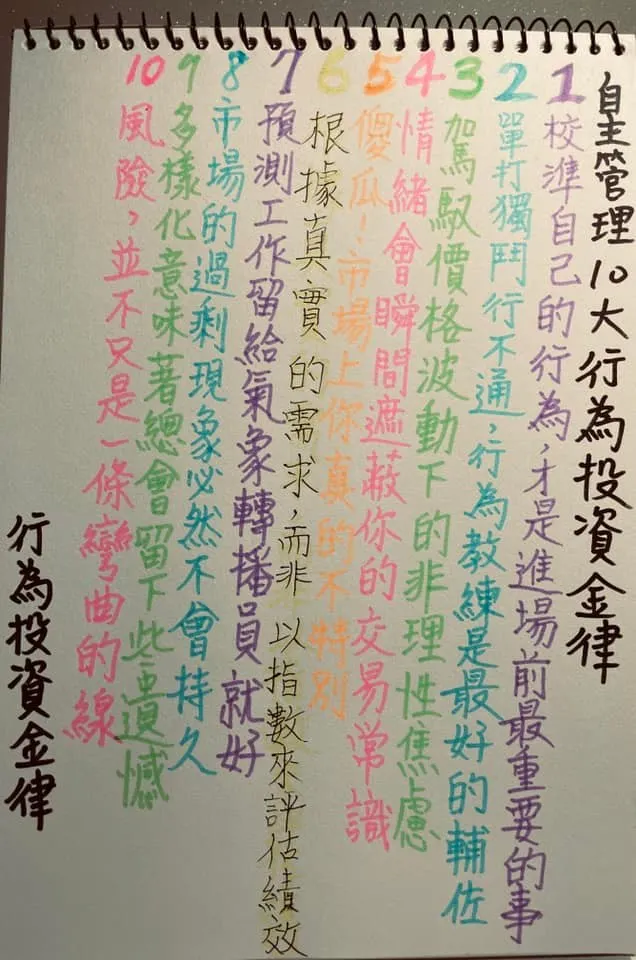 自主管理10大行為投資金律
1校準自己的行為,才是進場前最重要的事
2單打獨鬥行不通,行為教練是最好的輔佐
3駕馭價格波動下的非理性焦慮
4情緒會瞬間遮蔽你的交易常識
5傻瓜!市場上你真的不特別
6根據真實的需求,而非以指數來評估績效
7預測工作留給氣象轉播員就好
8市場的過剩現象必然不會持久
9多樣化意味著總會留下些遺憾
10風險,並不只是一條彎曲的線
行為投資金律